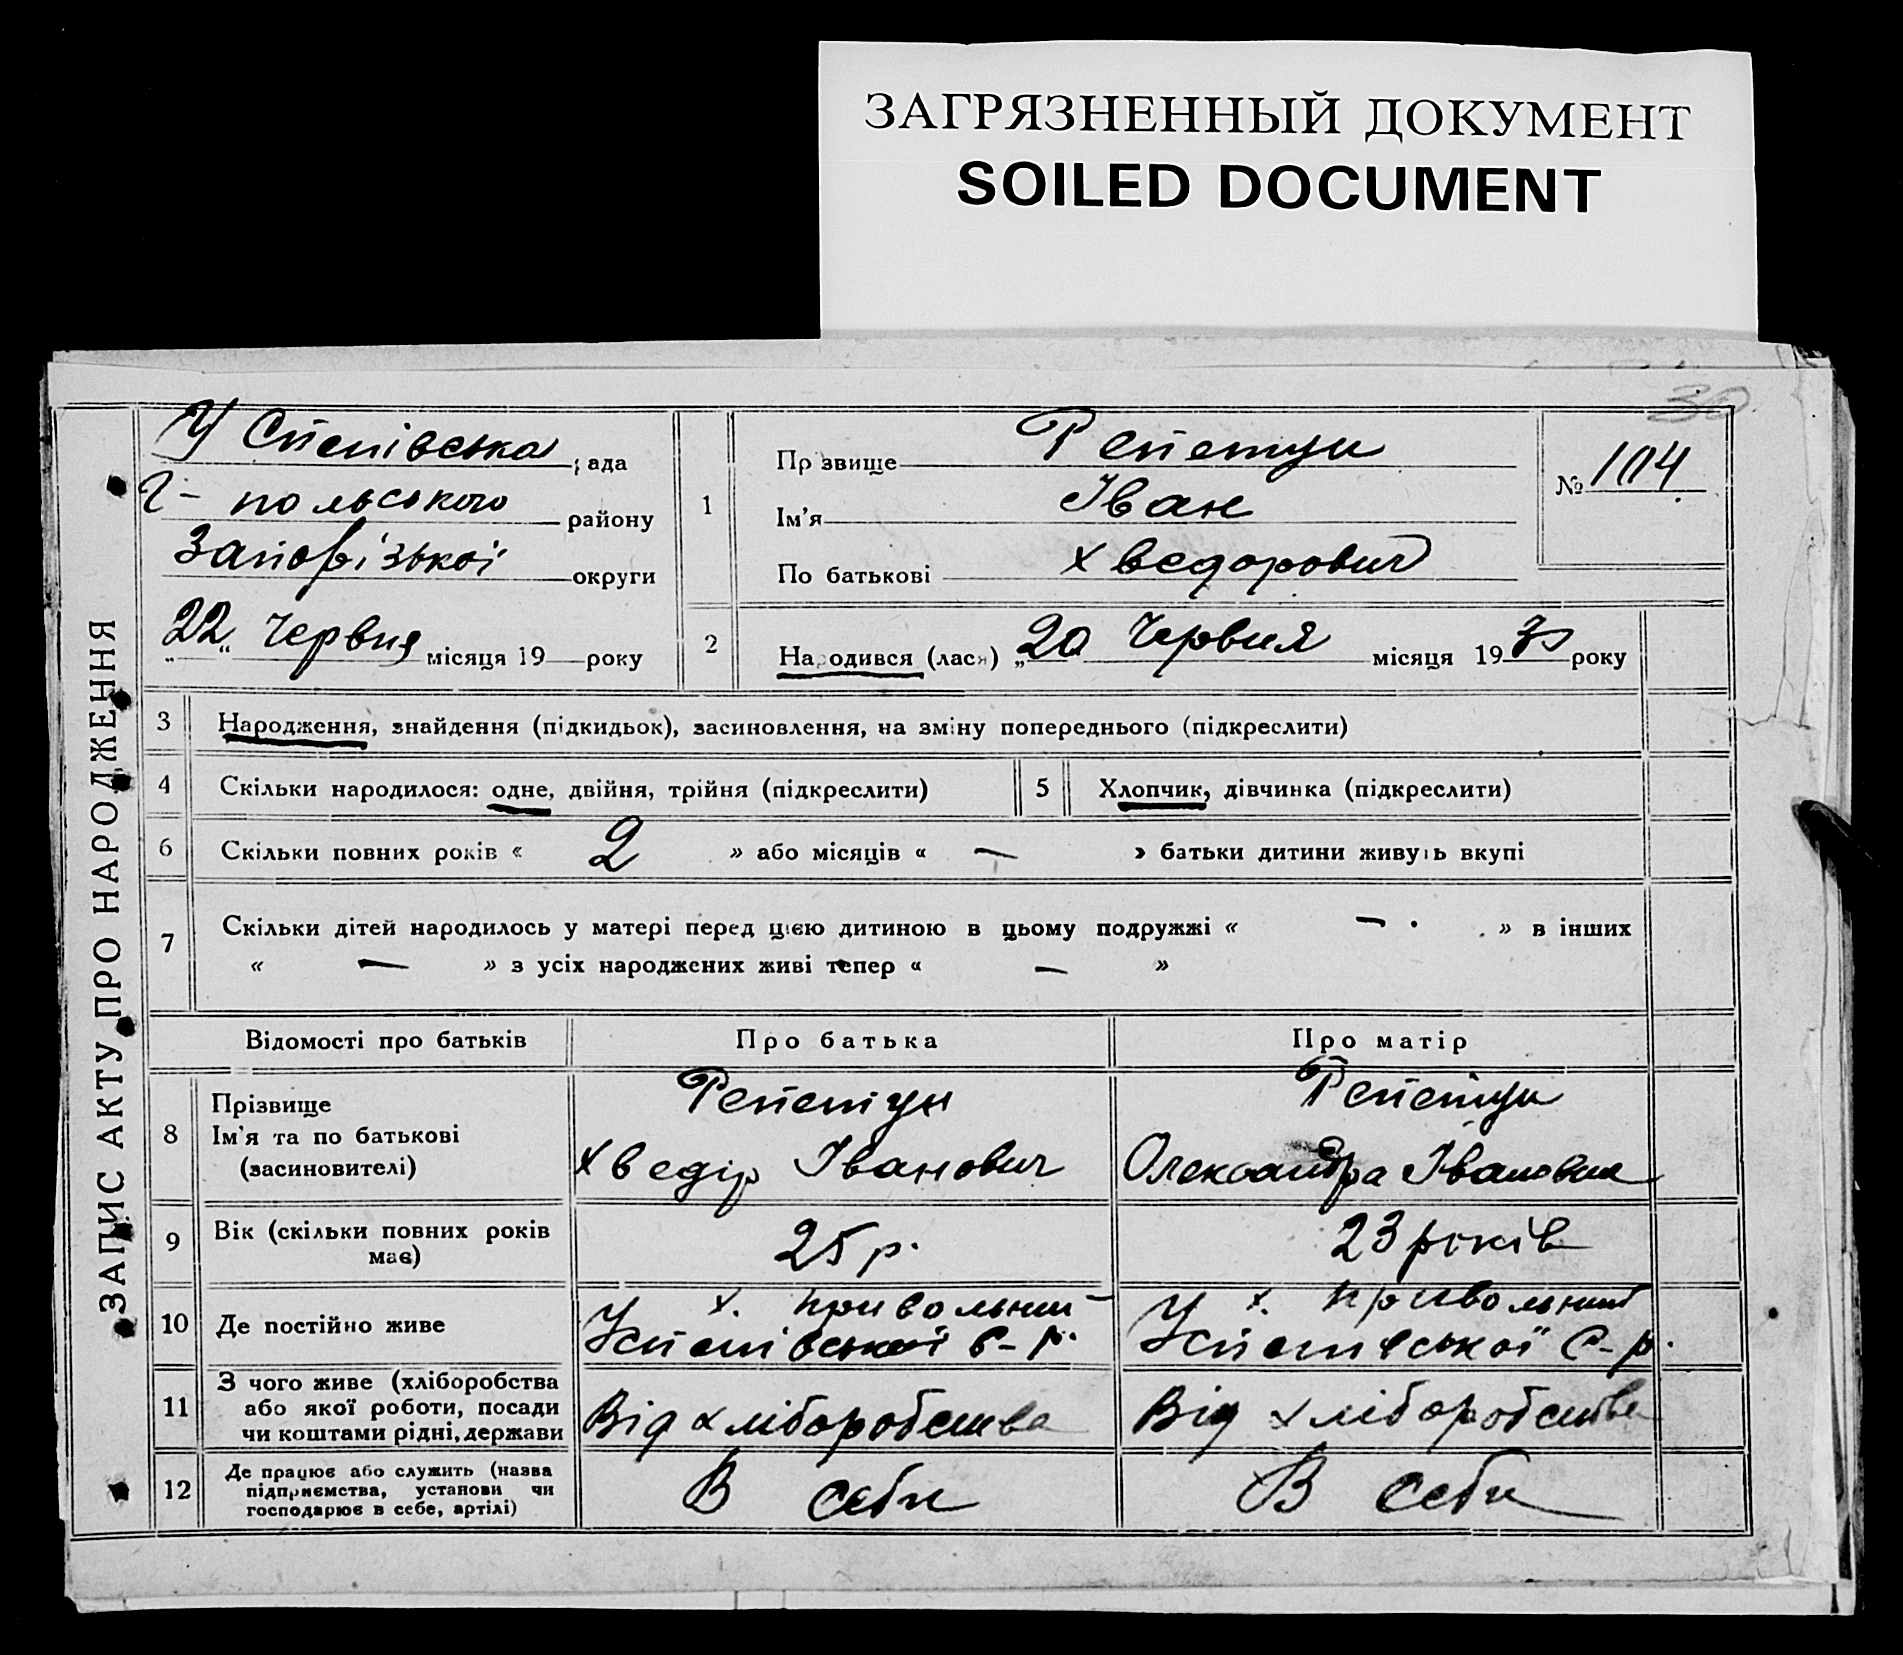 ЗАГРЯЗНЕННЫЙ ДОКУМЕНТ
SOILED DOCUMENT
30
ЗАПИС АКТУ ПРО НАРОДЖЕННЯ
Успенівська рада
Г-польського району
Запорізької округи
„22“ Червня місяця 19 року
1
Прізвище Репетун
Ім'я Іван
По батькові Хведорович
№ 104
2
Народився (лася) „20 Червня місяця 1930 року
3 Народження, знайдення (підкидьок), засиновлення, на зміну попереднього (підкреслити)
4 Скільки народилося: одне, двійня, трійня (підкреслити) 5 Хлопчик, дівчинка (підкреслити)
6 Скільки повних років « 2 » або місяців « — » батьки дитини живуть вкупі
7 Скільки дітей народилось у матері перед цією дитиною в цьому подружжі « — » в інших
« — » з усіх народжених живі тепер « — »
Відомості про батьків Про батька Про матір
8 Прізвище
Ім'я та по батькові
(засиновителі)
Репетун
Хведір Іванович
Репетун
Олександра Івановна
9 Вік (скільки повних років
має)
25 р.
23 років
10 Де постійно живе
х. Привольний
Успенівської с-р.
х. Привольний
Успенівської С-р.
11 З чого живе (хліборобства
або якої роботи, посади
чи коштами рідні, держави
Від хліборобства
Від хліборобства
12 Де працює або служить (назва
підприємства, установи чи
господарює в себе, артілі)
В себи
В себи